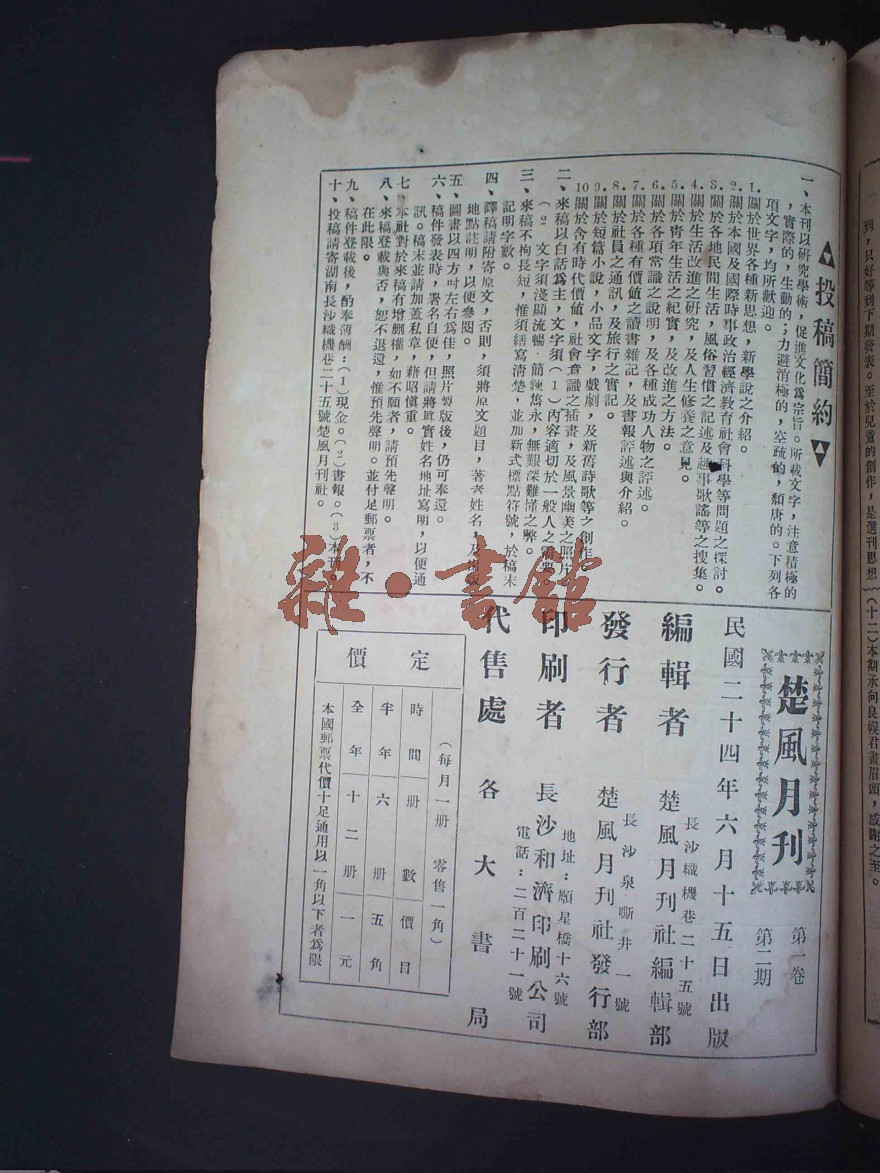 ▲投稿簡約▼
一、本刊以研究學術，促進文化爲宗旨。所載文字，注意積極的
，實際的，生動的；力避消極的，空疏的，頹唐的。下列各
項文字，均所歡迎。
1.關於世界各種新思想，新學說之介紹。
2.關於本國及國際時事政治經濟教育社會科學等問題之探討。
3.關於各地民間生活，風俗習慣之記述及趣事歌謠等之搜集。
4.關於生活改進之研究，及人生修養之意見。
5.關於青年生活之紀實，及改進之方法。
6.關於各項常識之說明，及各種成功人物之評述。
7.關於各種有價值之讀書雜記，及書報評述與介紹。
8.關於社員之通訊，及旅行之實記。
9.關於短篇小說，小品文字，戲劇，及新舊詩歌等之創作。
10關於含有時代價値，社會意識之插畫，及風景幽美之照片。
二、來稿以白話爲主，文字須（1）內容適切於一般人之需要。
（2）文字須淺顯流暢、簡鍊雋永，無艱深難懂之弊。
三、來稿不拘長短，惟須繕寫清楚，並加新式標點符號，於稿末
記明字數。
四、譯稿請附寄原文，否則，須將原文題目，著者姓名，及出版
地點註明，以便參閱。
五、圖畫以四方吋左右爲佳，照片製版後，仍可奉還。
六、稿件發表時，署名自便，但請將眞實姓名地址寫明，以便通
訊。稿末並請加蓋私章，藉昭愼重。
七、本社對於來稿有增删權，如不願者，請預先聲明。
八、來稿登載與否，恕不退還，惟預先聲明。並付足郵票者，不
在此限。
九、稿件登載後，酌奉薄酬：（1）現金。（2）書報。（3）本刊。
十、投稿請寄湖南長沙織機巷二十五號楚風月刊社。
楚風月刊
第一卷
第二期
民國二十四年六月十五日出版
編輯者
長沙織機巷二十五號
楚風月刊社編輯部
發行者
長沙泉嘶井一號
楚風月刊社發行部
印刷者
地址：顧星橋十六號
長沙和濟印刷公司
電話：二百二十一號
代售處 各大書局
定價
（每月一册 零售一角）
時間 册數 價目
半年 六册 五角
全年 十二册 一元
本國郵票代價十足通用以一角以下者爲限
到，只好等到下期發表。至於兒童的創作，是選刊思想
（十二）本期承向良幌君畫眉頭，感謝之至。
雜·書館